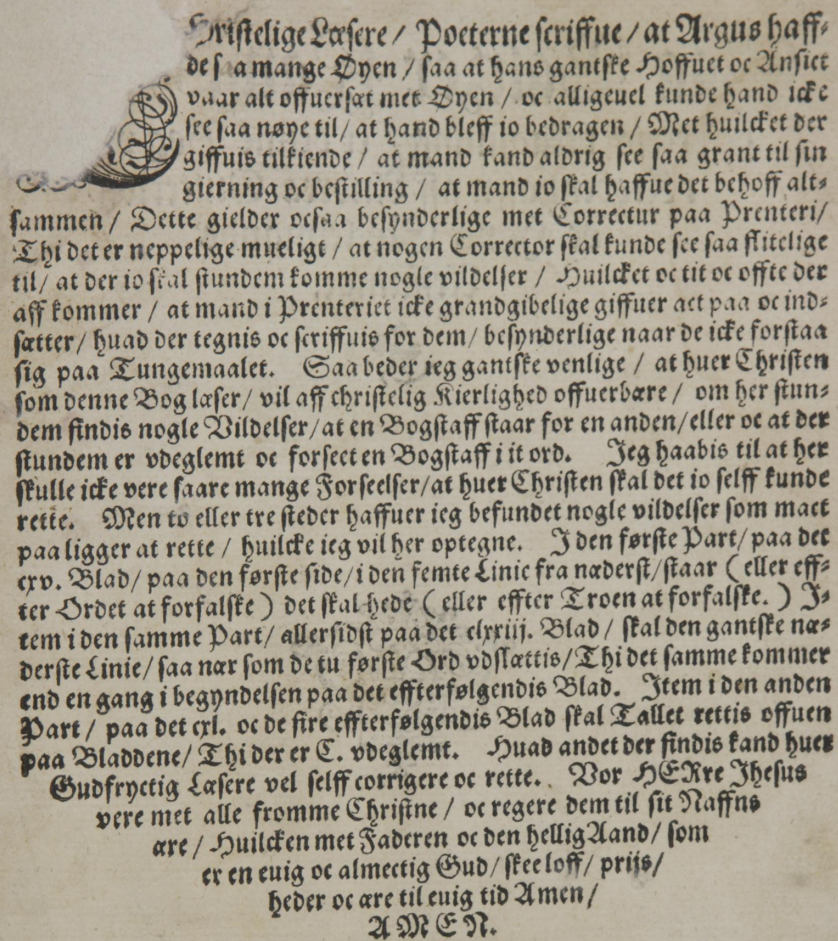 Christelige Læsere / Poeterne scriffue / at Argus haff⸗
de s a mange Øyen / saa at hans gantske Hoffuet oc Ansict
vaar alt offuersæt met Øyen / oc alligeuel kunde hand icke
see saa nøye til / at hand bleff io bedragen / Met huilcket der
giffuis tilkiende / at mand kand aldrig see saa grant til sin
gierning oc bestilling / at mand io skal haffue det behoff alt⸗
sammen / Dette gielder ocsaa besynderlige met Correctur paa Prenteri /
Thi det er neppelige mueligt / at nogen Corrector skal kunde see saa flitelige
til / at der io skal stundem komme nogle vildelser / Huilcket oc tit oc offte der
aff kommer / at mand i Prenteriet icke grandgibelige giffuer act paa oc ind⸗
sætter / huad der tegnis oc scriffuis for dem / besynderlige naar de icke forstaa
sig paa Tungemaalet. Saa beder ieg gantske venlige / at huer Christen
som denne Bog læser / vil aff christelig Kierlighed offuerbære / om her stun⸗
dem findis nogle Vildelser / at en Bogstaff staar for en anden / eller oc at der
stundem er vdeglemt oc forseet en Bogstaff i it ord. Jeg haabis til at her
skulle icke vere saare mange Forseelser / at huer Christen skal det io selff kunde
rette. Men to eller tre steder haffuer ieg befundet nogle vildelser som mact
paa ligger at rette / huilcke ieg vil her optegne. J den første Part / paa det
cxv. Blad / paa den første side / i den femte Linie fra næderst / staar ( eller eff⸗
ter Ordet at forfalske ) det skal hede ( eller effter Troen at forfalske. ) J⸗
tem i den samme Part / allersidst paa det clxxiij. Blad / skal den gantske næ⸗
derste Linie / saa nær som de tu første Ord vdslættis / Thi det samme kommer
end en gang i begyndelsen paa det effterfølgendis Blad. Jtem i den anden
Part / paa det cxl. oc de fire effterfølgendis Blad skal Tallet rettis offuen
paa Bladdene / Thi der er C. vdeglemt. Huad andet der findis kand huer
Gudfryctig Læsere vel selff corrigere oc rette. Vor HERre Jhesus
vere met alle fromme Christne / oc regere dem til sit Naffns
ære / Huilcken met Faderen oc den hellig Aand / som
er en euig oc almectig Gud / skee loff / prijs /
heder oc ære til euig tid Amen /
AMEN.